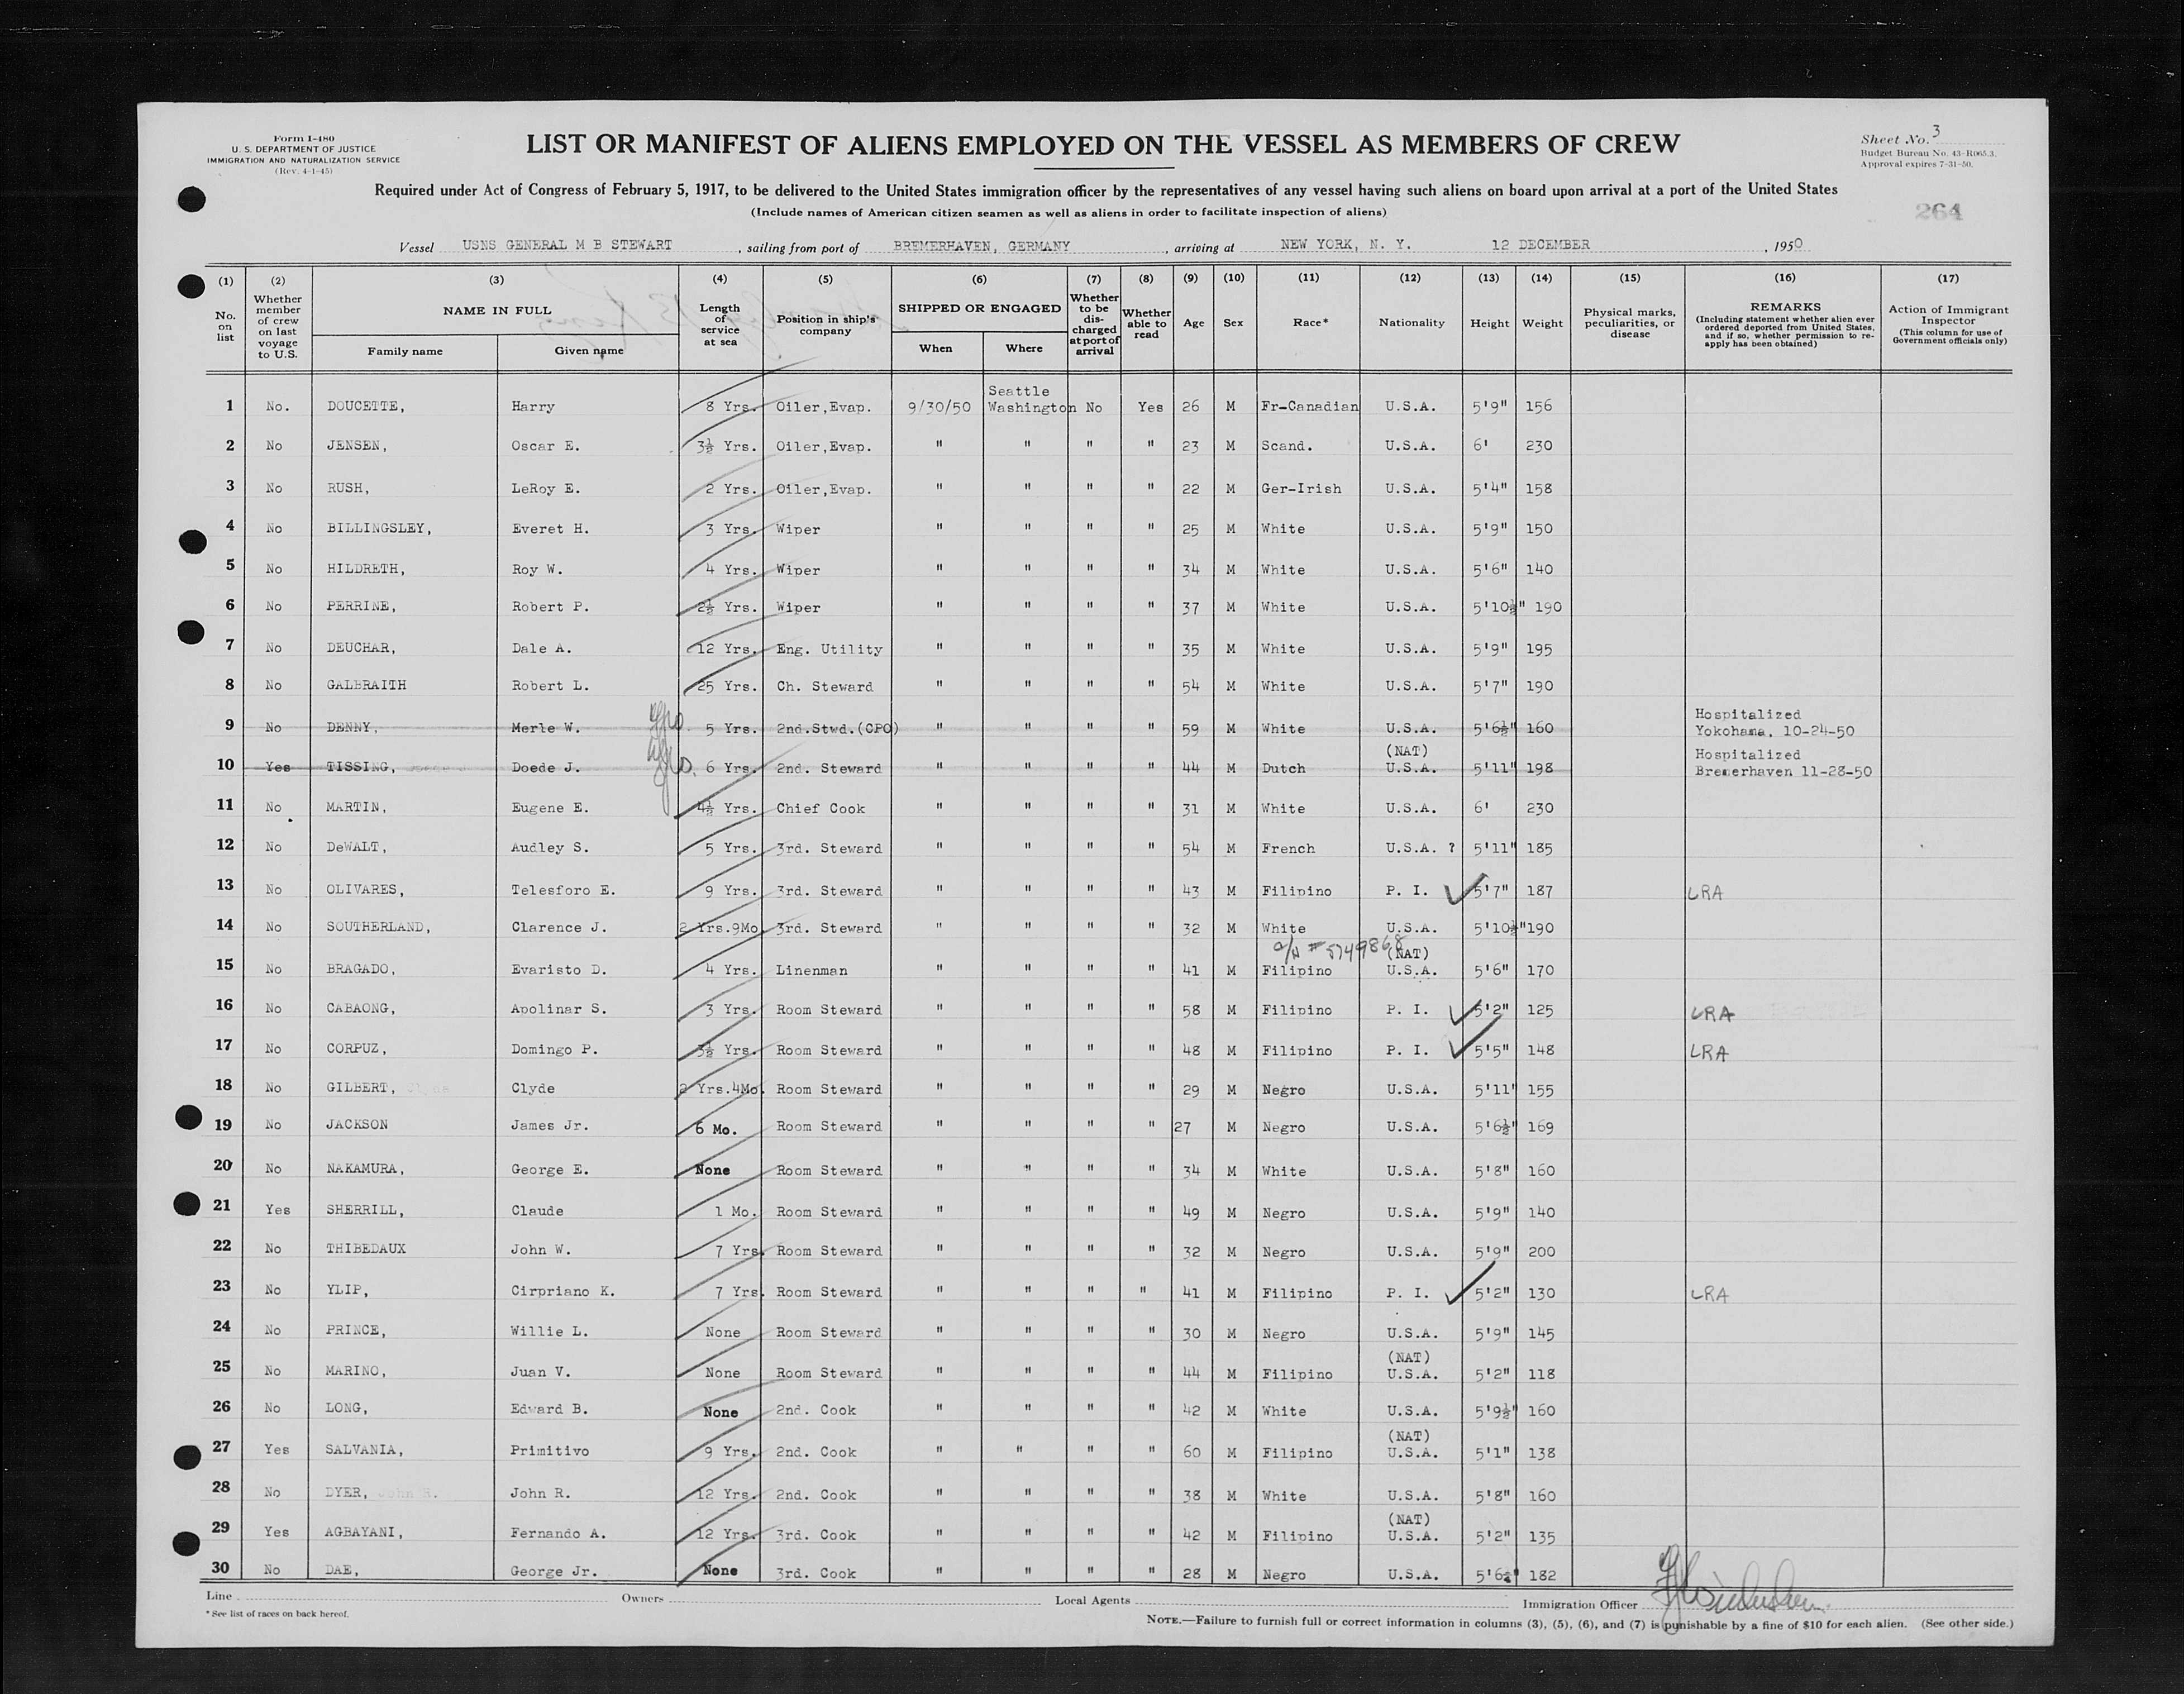 Form I-480
U. S. DEPARTMENT OF JUSTICE
IMMIGRATION AND NATURALIZATION SERVICE
(Rev. 4-1-45)
LIST OR MANIFEST OF ALIENS EMPLOYED ON THE VESSEL AS MEMBERS OF CREW
Sheet No. 3
Budget Bureau No. 43-R065.3.
Approval expires 7-31-50.
Required under Act of Congress of February 5, 1917, to be delivered to the United States immigration officer by the representatives of any vessel having such aliens on board upon arrival at a port of the United States
(Include names of American citizen seamen as well as aliens in order to facilitate inspection of aliens)
264
Vessel USNS GENERAL M B STEWART, sailing from port of BREMERHAVEN, GERMANY, arriving at NEW YORK, N. Y. 12 DECEMBER, 1950
(1) No. on list
(2) Whether member of crew on last voyage to U.S.
(3) NAME IN FULL Family name Given name
(4) Length of service at sea
(5) Position in ship's company
(6) SHIPPED OR ENGAGED When Where
(7) Whether to be discharged at port of arrival
(8) Whether able to read
(9) Age
(10) Sex
(11) Race*
(12) Nationality
(13) Height
(14) Weight
(15) Physical marks, peculiarities, or disease
(16) REMARKS (Including statement whether alien ever ordered deported from United States, and if so, whether permission to re-apply has been obtained)
(17) Action of Immigrant Inspector (This column for use of Government officials only)
1 No. DOUCETTE, Harry 8 Yrs. Oiler,Evap. 9/30/50 Seattle Washington No Yes 26 M Fr-Canadian U.S.A. 5'9" 156
2 No JENSEN, Oscar E. 3½ Yrs. Oiler,Evap. " " " " 23 M Scand. U.S.A. 6' 230
3 No RUSH, LeRoy E. 2 Yrs. Oiler,Evap. " " " " 22 M Ger-Irish U.S.A. 5'4" 158
4 No BILLINGSLEY, Everet H. 3 Yrs. Wiper " " " " 25 M White U.S.A. 5'9" 150
5 No HILDRETH, Roy W. 4 Yrs. Wiper " " " " 34 M White U.S.A. 5'6" 140
6 No PERRINE, Robert P. 2½ Yrs. Wiper " " " " 37 M White U.S.A. 5'10½" 190
7 No DEUCHAR, Dale A. 12 Yrs. Eng. Utility " " " " 35 M White U.S.A. 5'9" 195
8 No GALBRAITH Robert L. 25 Yrs. Ch. Steward " " " " 54 M White U.S.A. 5'7" 190
9 No DENNY, Merle W. 5 Yrs. 2nd.Stwd.(CPO) " " " " 59 M White U.S.A. 5'6½" 160 Hospitalized Yokohama, 10-24-50
10 Yes TISSING, Doede J. 6 Yrs. 2nd. Steward " " " " 44 M Dutch (NAT) U.S.A. 5'11" 198 Hospitalized Bremerhaven 11-28-50
11 No MARTIN, Eugene E. 4½ Yrs. Chief Cook " " " " 31 M White U.S.A. 6' 230
12 No DeWALT, Audley S. 5 Yrs. 3rd. Steward " " " " 54 M French U.S.A. ? 5'11" 185
13 No OLIVARES, Telesforo E. 9 Yrs. 3rd. Steward " " " " 43 M Filipino P. I. ✓ 5'7" 187 LRA
14 No SOUTHERLAND, Clarence J. 2 Yrs.9Mo. 3rd. Steward " " " " 32 M White U.S.A. 5'10½" 190
15 No BRAGADO, Evaristo D. 4 Yrs. Linenman " " " " 41 M Filipino # 5749868 (NAT) U.S.A. 5'6" 170
16 No CABAONG, Apolinar S. 3 Yrs. Room Steward " " " " 58 M Filipino P. I. ✓ 5'2" 125 LRA
17 No CORPUZ, Domingo P. 3½ Yrs. Room Steward " " " " 48 M Filipino P. I. ✓ 5'5" 148 LRA
18 No GILBERT, Clyde 2 Yrs.4Mo. Room Steward " " " " 29 M Negro U.S.A. 5'11" 155
19 No JACKSON James Jr. 6 Mo. Room Steward " " " " 27 M Negro U.S.A. 5'6½" 169
20 No NAKAMURA, George E. None Room Steward " " " " 34 M White U.S.A. 5'8" 160
21 Yes SHERRILL, Claude 1 Mo. Room Steward " " " " 49 M Negro U.S.A. 5'9" 140
22 No THIBEDAUX John W. 7 Yrs. Room Steward " " " " 32 M Negro U.S.A. 5'9" 200
23 No YLIP, Cirpriano K. 7 Yrs. Room Steward " " " " 41 M Filipino P. I. ✓ 5'2" 130 LRA
24 No PRINCE, Willie L. None Room Steward " " " " 30 M Negro U.S.A. 5'9" 145
25 No MARINO, Juan V. None Room Steward " " " " 44 M Filipino (NAT) U.S.A. 5'2" 118
26 No LONG, Edward B. None 2nd. Cook " " " " 42 M White U.S.A. 5'9½" 160
27 Yes SALVANIA, Primitivo 9 Yrs. 2nd. Cook " " " " 60 M Filipino (NAT) U.S.A. 5'1" 138
28 No DYER, John R. 12 Yrs. 2nd. Cook " " " " 38 M White U.S.A. 5'8" 160
29 Yes AGBAYANI, Fernando A. 12 Yrs. 3rd. Cook " " " " 42 M Filipino (NAT) U.S.A. 5'2" 135
30 No DAE, George Jr. None 3rd. Cook " " " " 28 M Negro U.S.A. 5'6½" 182
Line Owners Local Agents Immigration Officer
* See list of races on back hereof.
NOTE.—Failure to furnish full or correct information in columns (3), (5), (6), and (7) is punishable by a fine of $10 for each alien. (See other side.)